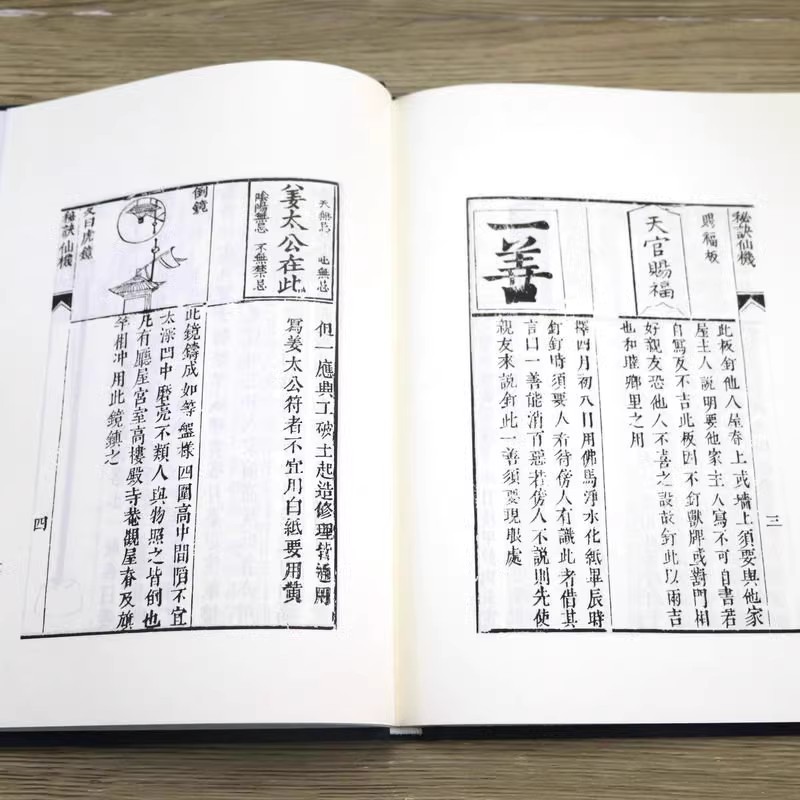 秘訣仙機
三
賜福板
天官賜福
此板釘他人屋脊上或墻上須要與他家
屋主人說明要他家主人寫不可自書若
自寫反不吉此板因不釘獸牌或對門相
好親友恐他人不喜之設故釘此以兩吉
也和睦鄉里之用
一善
擇四月初八日用佛馬淨水化紙畢辰時
釘釘時須要人看待傍人有識此者借其
言曰一善能消百惡若傍人不說則先使
親友來說釘此一善須要現眼處
天無忌
地無忌
姜太公在此
陰陽無忌
無禁忌
但一應興工破土起造修理皆通用
寫姜太公符者不宜用白紙要用黃
倒鏡
此鏡鑄成如等盤樣四圍高中間陷不宜
太深凹中磨亮不類人與物照之皆倒也
凡有廳屋宮室高樓殿寺菴觀屋脊及旗
竿相冲用此鏡鎮之
又曰虎鏡
秘訣仙機
四